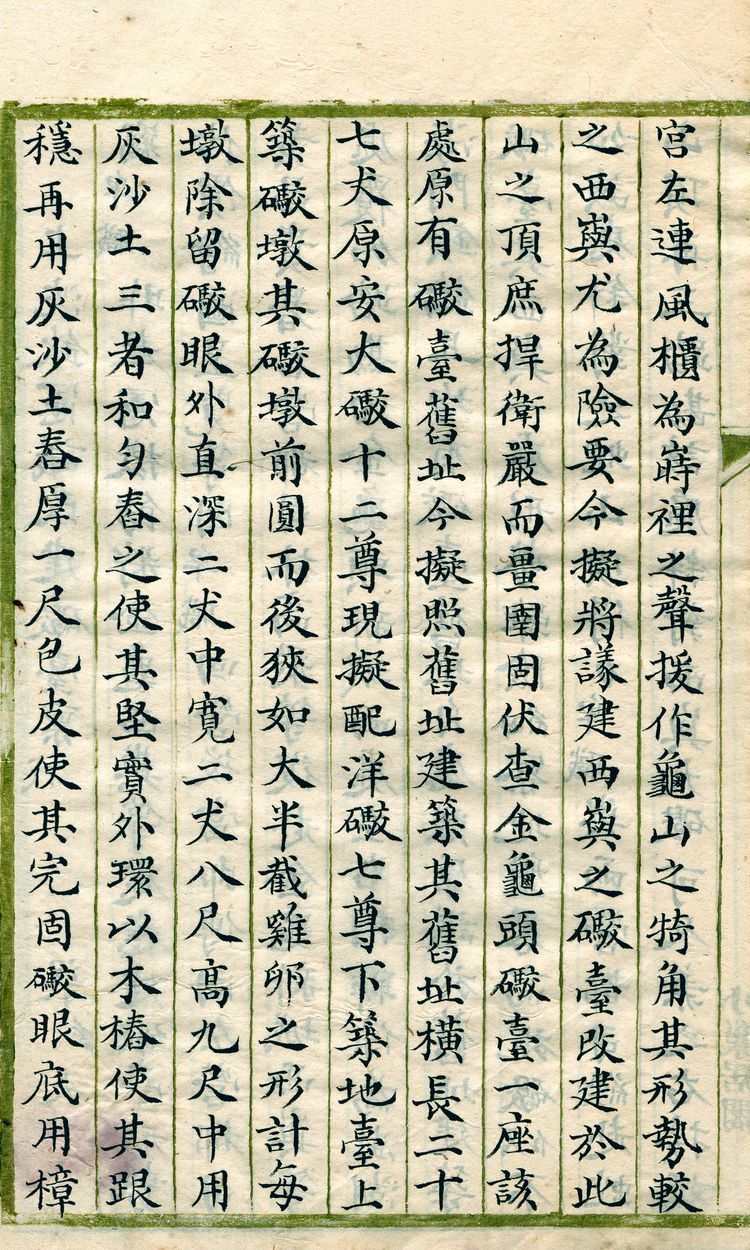 宮左連風櫃為嵵裡之聲援作龜山之犄角其形勢較
之西嶼尤為險要今擬將議建西嶼之礮臺改建於此
山之頂庶捍衛嚴而畺圉固伏查金龜頭礮臺一座該
處原有礮臺舊址今擬照舊址建築其舊址橫長二十
七丈原安大礮十二尊現擬配洋礮七尊下築地臺上
築礮墩其礮墩前圓而後狹如大半截雞卵之形計每
墩除留礮眼外直深二丈中寬二丈八尺高九尺中用
灰沙土三者和勻舂之使其堅實外環以木樁使其跟
穩再用灰沙土舂厚一尺色皮使其完固礮眼底用樟